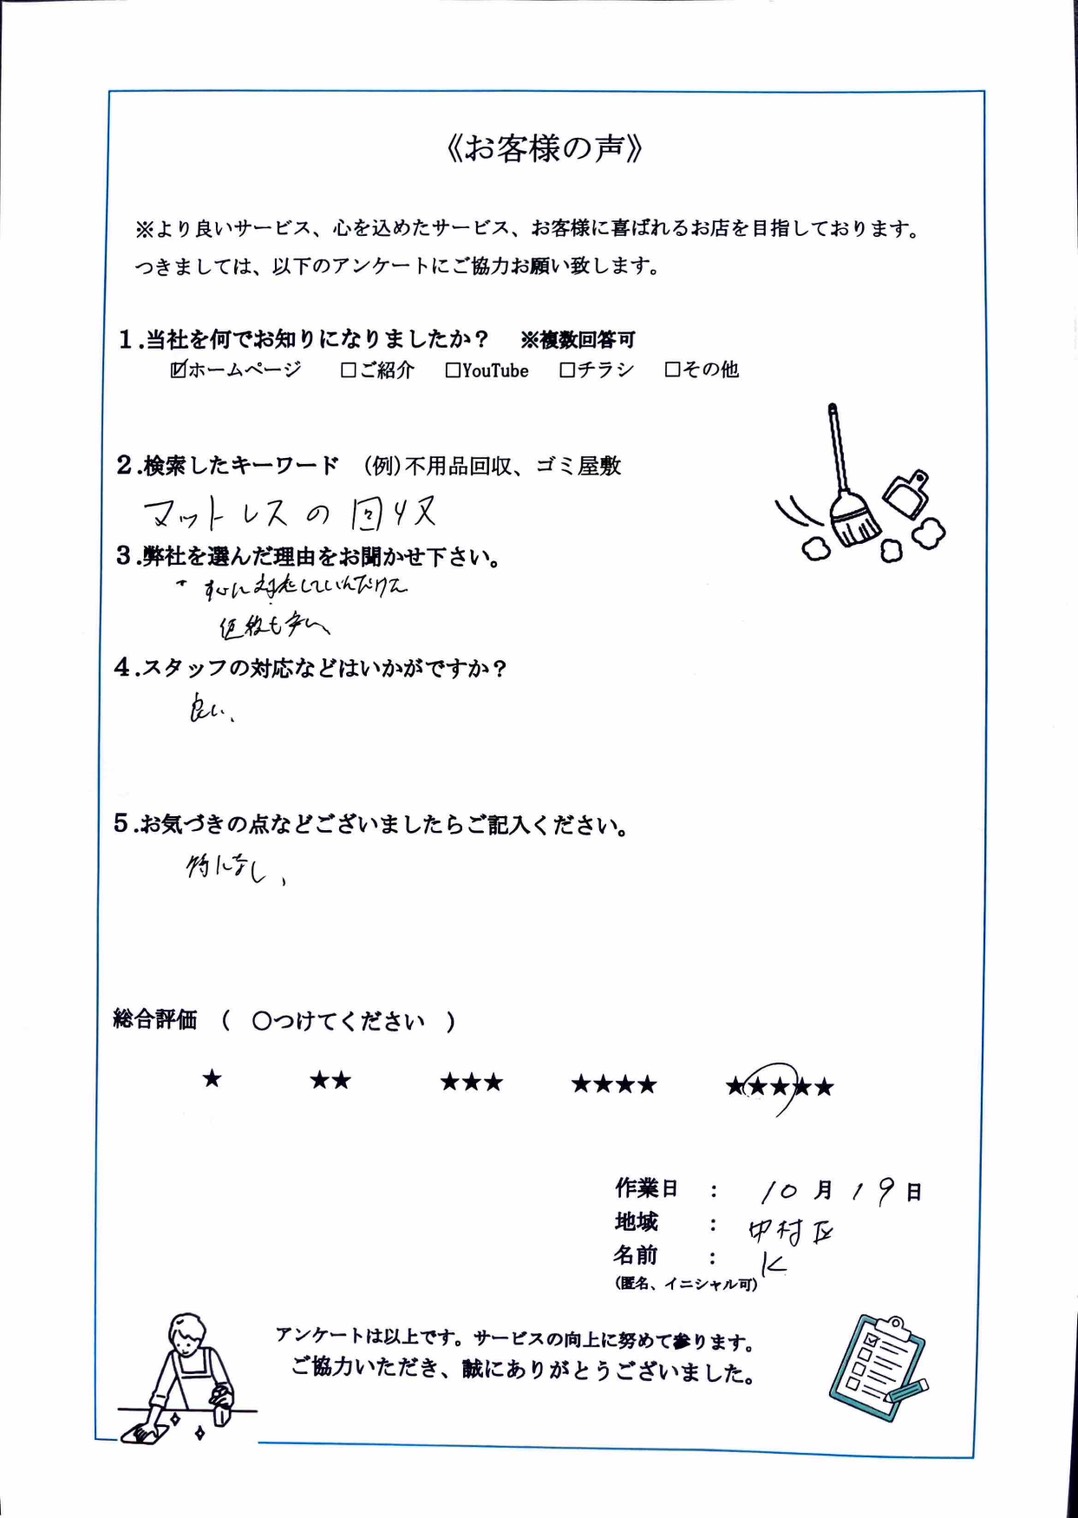 《お客様の声》
※より良いサービス、心を込めたサービス、お客様に喜ばれるお店を目指しております。
つきましては、以下のアンケートにご協力お願い致します。
1.当社を何でお知りになりましたか？ ※複数回答可
☑ホームページ □ご紹介 □YouTube □チラシ □その他
2.検索したキーワード （例）不用品回収、ゴミ屋敷
マットレスの回収
3.弊社を選んだ理由をお聞かせ下さい。
すぐに対応していただけた
値段も安い、
4.スタッフの対応などはいかがですか？
良い、
5.お気づきの点などございましたらご記入ください。
特になし、
総合評価 （ ○つけてください ）
★ ★★ ★★★ ★★★★ ★★★★★
作業日 ： 10月19日
地域 ： 中村区
名前 ： K
（匿名、イニシャル可）
アンケートは以上です。サービスの向上に努めて参ります。
ご協力いただき、誠にありがとうございました。